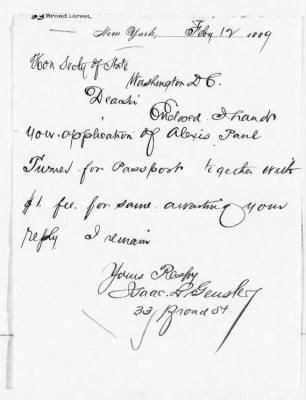 33 Broad Street,
New York, Feby 12 1889
Hon Secty of State
Washington D C.
Dear Sir
Enclosed I hand
you application of Alexis Paul
Turner for Passport together with
$1 fee for same. awaiting your
reply I remain
Yours Respy
Isaac
33 Broad St